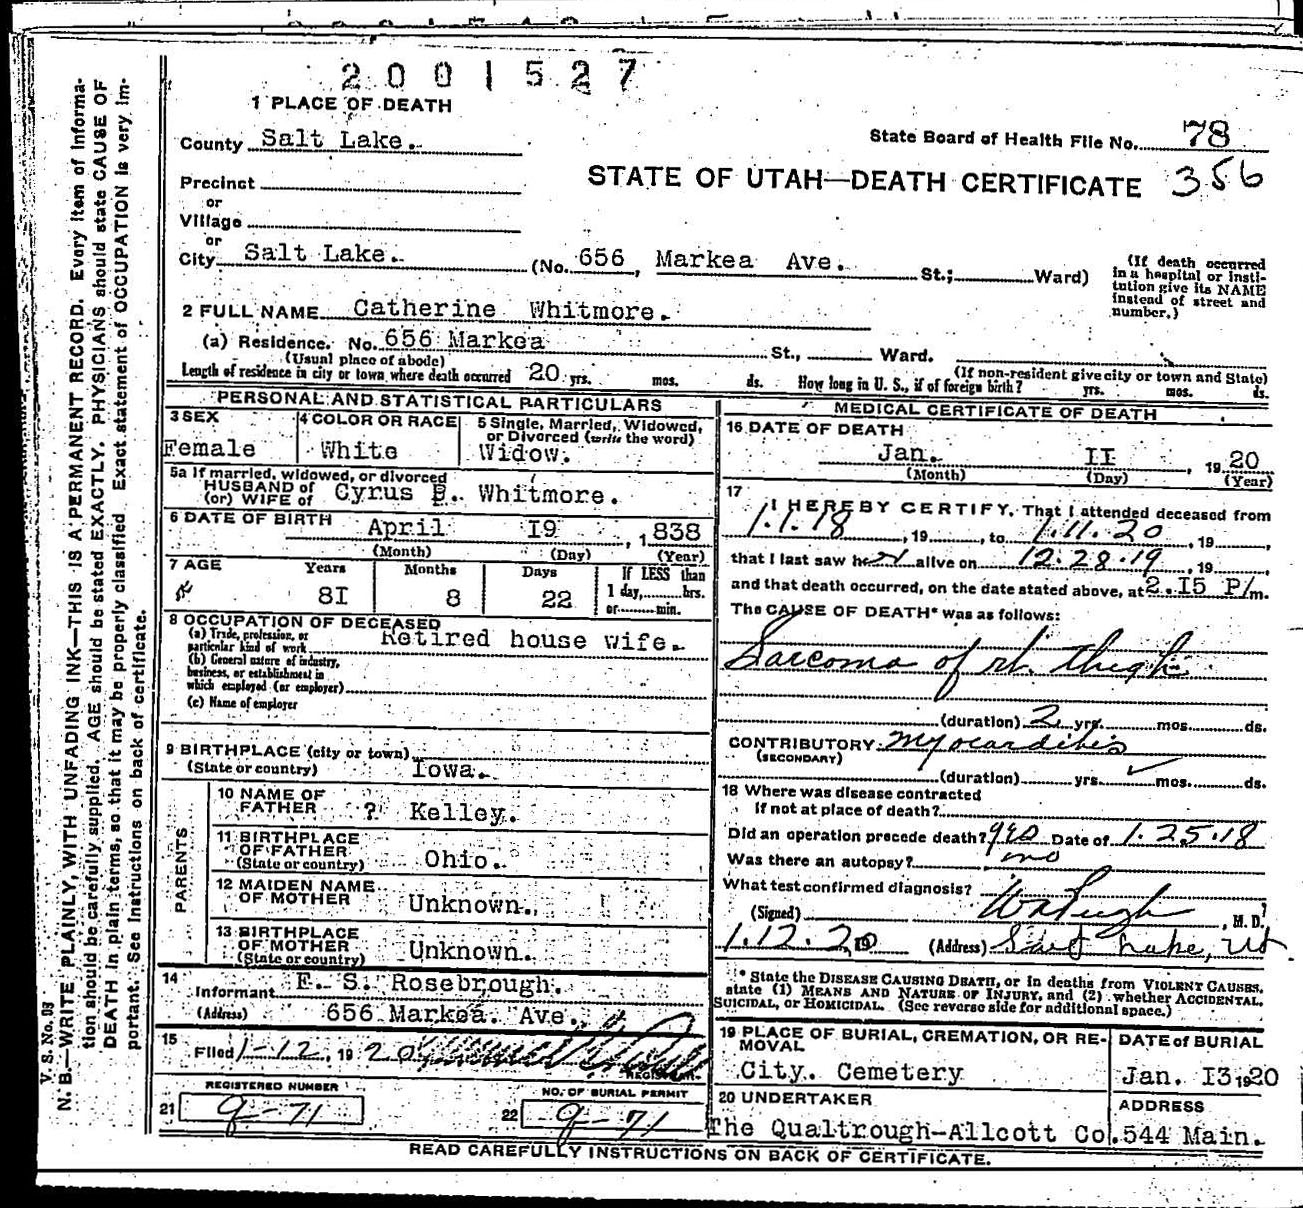 2001527
1 PLACE OF DEATH
County Salt Lake.
State Board of Health File No. 78
356
STATE OF UTAH—DEATH CERTIFICATE
Precinct
or
Village
or
City Salt Lake. (No. 656, Markea Ave. St.; Ward)
(If death occurred in a hospital or institution give its NAME instead of street and number.)
2 FULL NAME Catherine Whitmore.
(a) Residence. No. 656 Markea St., Ward.
(Usual place of abode) (If non-resident give city or town and State)
Length of residence in city or town where death occurred 20 yrs. mos. ds. How long in U. S., if of foreign birth? yrs. mos. ds.
PERSONAL AND STATISTICAL PARTICULARS
3 SEX
Female
4 COLOR OR RACE
White
5 Single, Married, Widowed, or Divorced (write the word)
Widow.
5a If married, widowed, or divorced
HUSBAND of
(or) WIFE of Cyrus B. Whitmore.
6 DATE OF BIRTH April I9, 1838
(Month) (Day) (Year)
7 AGE Years Months Days If LESS than
1 day, hrs.
or min.
8I 8 22
8 OCCUPATION OF DECEASED
(a) Trade, profession, or particular kind of work Retired house wife.
(b) General nature of industry, business, or establishment in which employed (or employer)
(c) Name of employer
9 BIRTHPLACE (city or town)
(State or country) Iowa.
PARENTS
10 NAME OF FATHER ? Kelley.
11 BIRTHPLACE OF FATHER
(State or country) Ohio.
12 MAIDEN NAME OF MOTHER Unknown.
13 BIRTHPLACE OF MOTHER
(State or country) Unknown.
14
Informant E. S. Rosebrough.
(Address) 656 Markea. Ave.
15
Filed 1-12, 1920
REGISTRAR.
REGISTERED NUMBER
21 9-71
NO. OF BURIAL PERMIT
22 9-71
MEDICAL CERTIFICATE OF DEATH
16 DATE OF DEATH
Jan. II, 1920
(Month) (Day) (Year)
17
I HEREBY CERTIFY, That I attended deceased from
1.1.18, 19, to 1.11.20, 19,
that I last saw her alive on 12.28.19, 19,
and that death occurred, on the date stated above, at 2.I5 P/m.
The CAUSE OF DEATH* was as follows:
Sarcoma of rt. thigh
(duration) 2 yrs. mos. ds.
CONTRIBUTORY Myocarditis
(SECONDARY)
(duration) yrs. mos. ds.
18 Where was disease contracted
if not at place of death?
Did an operation precede death? yes Date of 1.25.18
Was there an autopsy? no
What test confirmed diagnosis?
(Signed) , M. D.
1.12.20 (Address) Salt Lake, Ut
* State the DISEASE CAUSING DEATH, or in deaths from VIOLENT CAUSES,
state (1) MEANS AND NATURE OF INJURY, and (2) whether ACCIDENTAL,
SUICIDAL, or HOMICIDAL. (See reverse side for additional space.)
19 PLACE OF BURIAL, CREMATION, OR REMOVAL
City. Cemetery
DATE of BURIAL
Jan. I3 1920
20 UNDERTAKER
The Qualtrough-Allcott Co.
ADDRESS
544 Main.
READ CAREFULLY INSTRUCTIONS ON BACK OF CERTIFICATE.
V. S. No. 93
N. B.—WRITE PLAINLY, WITH UNFADING INK—THIS IS A PERMANENT RECORD. Every item of informa-
tion should be carefully supplied. AGE should be stated EXACTLY. PHYSICIANS should state CAUSE OF
DEATH in plain terms, so that it may be properly classified. Exact statement of OCCUPATION is very im-
portant. See instructions on back of certificate.